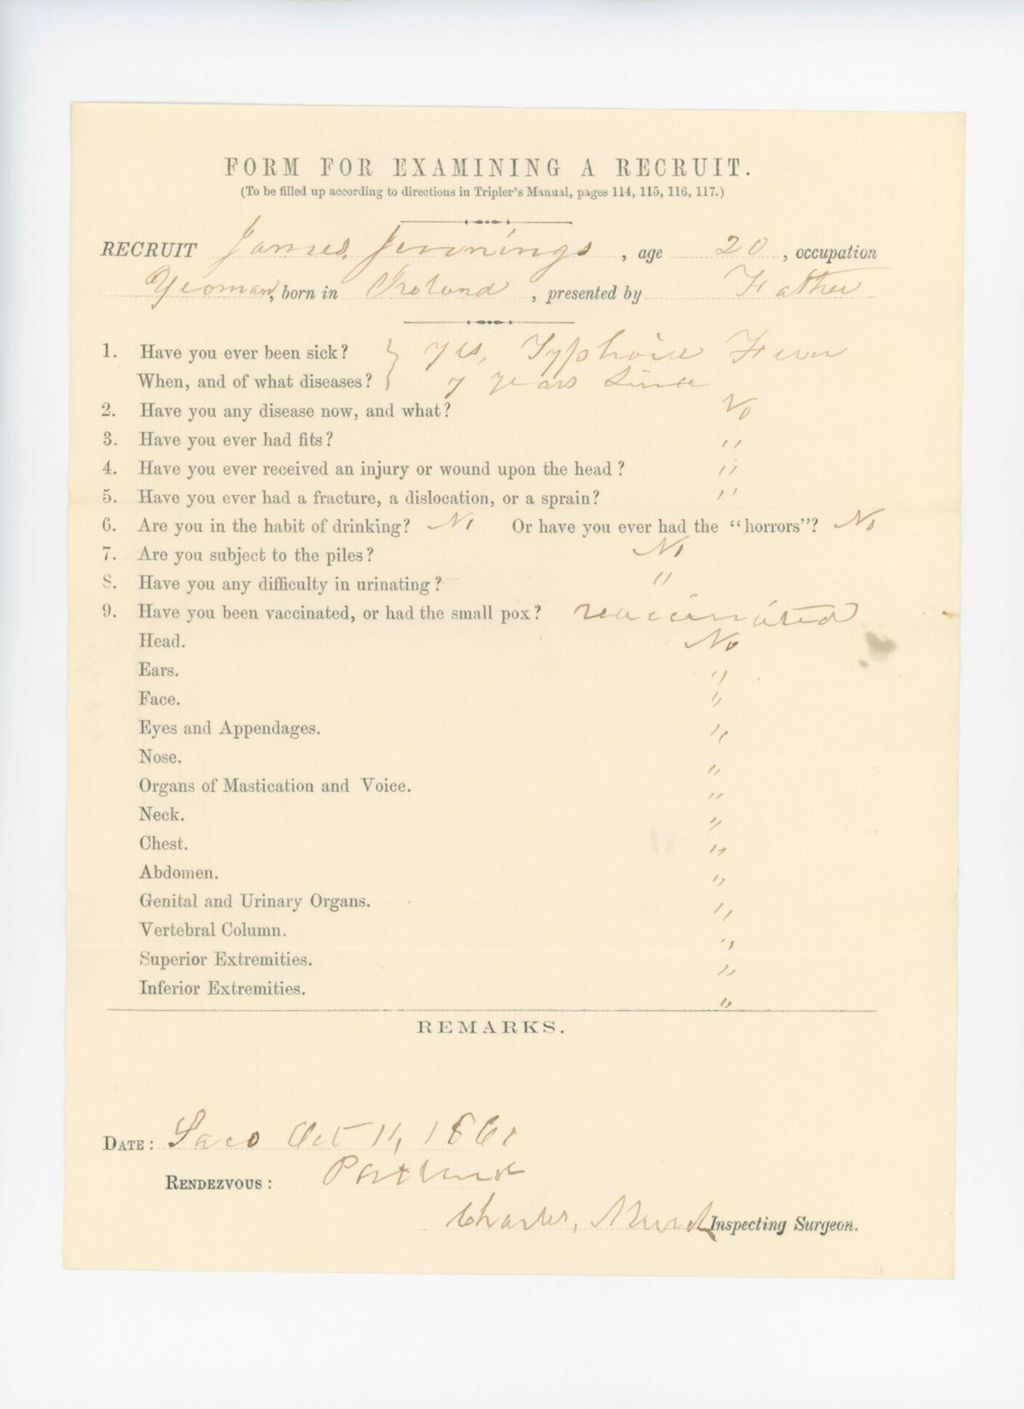 FORM FOR EXAMINING A RECRUIT.
(To be filled up according to directions in Tripler's Manual, pages 114, 115, 116, 117.)
RECRUIT James Jennings , age 20 , occupation
Yeoman, born in Ireland , presented by Father
1. Have you ever been sick? } Yes, Typhoid Fever
When, and of what diseases? } 7 years since
2. Have you any disease now, and what? No
3. Have you ever had fits? "
4. Have you ever received an injury or wound upon the head? "
5. Have you ever had a fracture, a dislocation, or a sprain? "
6. Are you in the habit of drinking? No Or have you ever had the "horrors"? No
7. Are you subject to the piles? No
8. Have you any difficulty in urinating? "
9. Have you been vaccinated, or had the small pox?
Head. No
Ears. "
Face. "
Eyes and Appendages. "
Nose. "
Organs of Mastication and Voice. "
Neck. "
Chest. "
Abdomen. "
Genital and Urinary Organs. "
Vertebral Column. "
Superior Extremities. "
Inferior Extremities. "
REMARKS.
DATE: Saco Oct 11, 1861
RENDEZVOUS: Portland
Charles, Inspecting Surgeon.